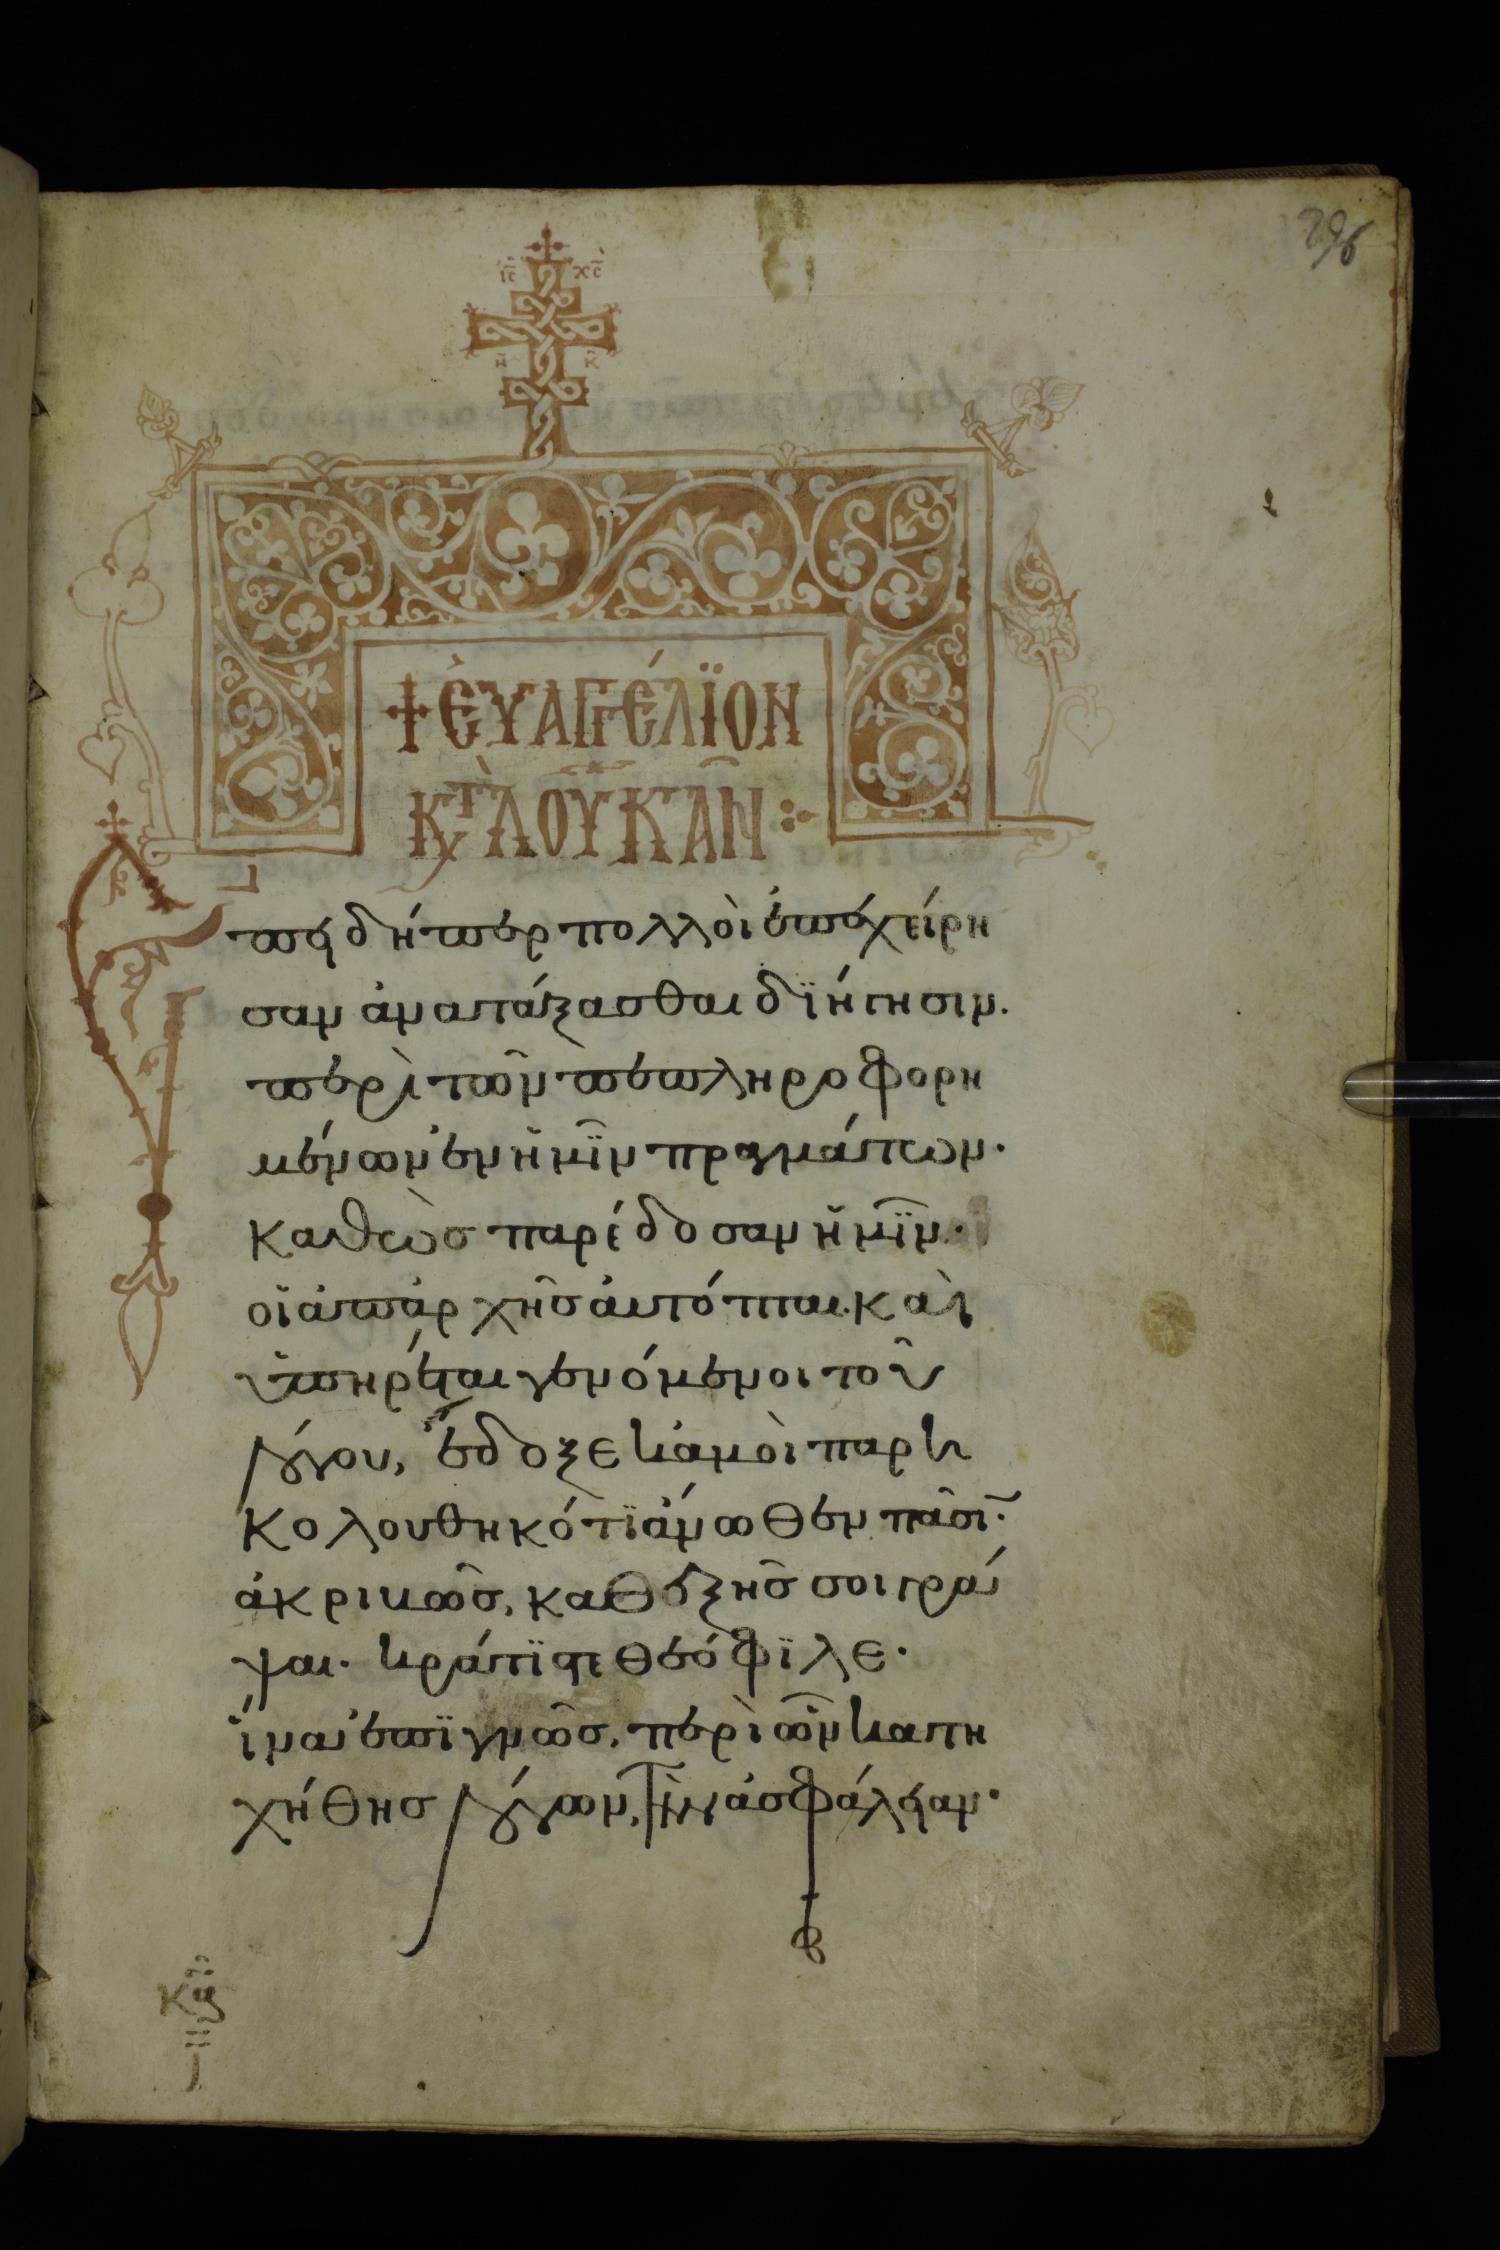 296
ῑ̄ς̄ χ̄ς̄
ν̄ κ̄
+ ἐυαγγέλϊον
κτ̀ λουκᾶν :·
Ἐπειδήπερ πολλοὶ ἐπεχείρη
σαν ἀναταξασθαι διήγησιν.
περὶ τῶν πεπληροφορη
μένων ἐν ἡμῖν πραγμάτων.
καθὼσ παρέδοσαν ἡμῖν·
οἱ ἀπαρχῆσ ἀυτόπται· καὶ
ὑπηρέται γενόμενοι τοῦ
λόγου, ἔδοξε κἀμοὶ παρη
κολουθηκότϊ ἄνωθεν πᾶσιν·
ἀκριβῶσ, καθεξῆσ σοι γρά
ψαι· κράτϊστε θεόφϊλε·
ἵνα ἐπϊγνῶσ, περὶ ὧν κατη
χήθησ λόγων, τὴν ἀσφάλειαν·